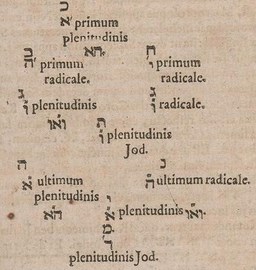 primum
plenitudinis
הא
primum primum
radicale. radicale.
ג ג
ו plenitudinis ו radicale.
ואו ה
י plenitudinis
Jod.
ה
א ultimum ה ultimum radicale.
plenitudinis
הא א plenitudinis ואו.
plenitudinis Jod.